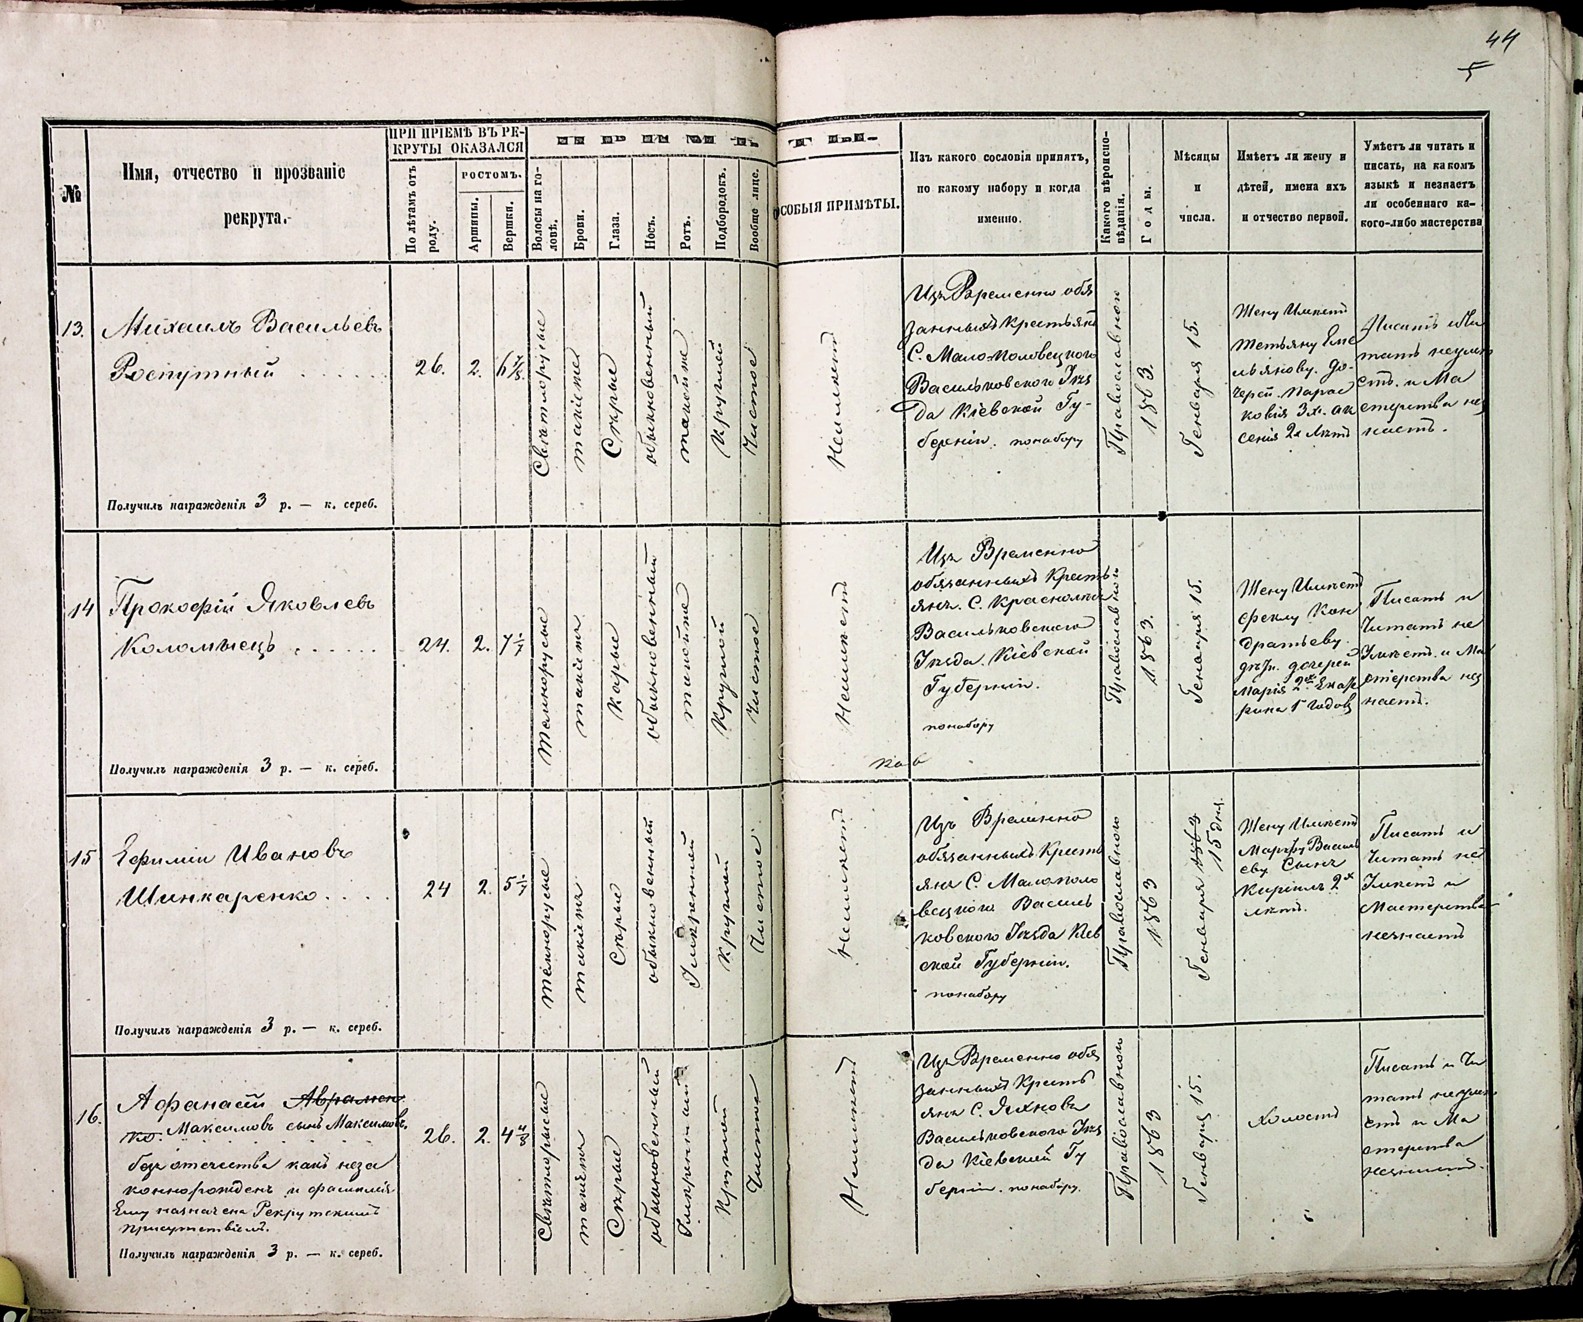 44
5
№
Имя, отчество и прозваніе
рекрута.
ПРИ ПРІЕМѢ ВЪ РЕ-
КРУТЫ ОКАЗАЛСЯ
По лѣтамъ отъ
роду.
РОСТОМЪ.
Аршины.
Вершки.
Волосы на го-
ловѣ.
Брови.
Глаза.
Носъ.
Ротъ.
Подбородокъ.
Вообще лице.
ОСОБЫЯ ПРИМѢТЫ.
Изъ какого сословія принятъ,
по какому набору и когда
именно.
Какого вѣроиспо-
вѣданія.
Годы.
Мѣсяцы
и
числа.
Имѣетъ ли жену и
дѣтей, имена ихъ
и отчество первой.
Умѣетъ ли читать и
писать, на какомъ
языкѣ и незнаетъ
ли особеннаго ка-
кого-либо мастерства
13.
Михаилъ Васильевъ
Роспутный
Получилъ награжденія 3 р. — к. сереб.
26.
2.
Свѣтлорусые
такіежъ
Сѣрые
обыкновенный
таковйже
Круглой
Чистое
Неимѣетъ
Изъ Временно обя
занныхъ Крестьянъ
С. Мало-Половецкого
Васильковского Уѣз
да Кіевской Гу-
берніи. понабору
Православной
1863.
Генваря 15.
Жену Имѣетъ
Татьяну Еме
льянову. До-
черей. Парас
ковія 3х.
2х лѣтъ
Писать и Чи
тать неумѣ
етъ. и Ма
стерства нез
наетъ.
14
Прокофій Яковлевъ
Коломѣецъ
Получилъ награжденія 3 р. — к. сереб.
24.
2.
Темнорусые
такіежъ
Карые
обыкновенный
таковйже
Круглой
Чистое
Неимѣетъ
Изъ Временно
обязанныхъ Кресть
янъ. С.
Васильковского
Уѣзда. Кіевской
Губерніи.
понабору
Православной
1863.
Генваря 15.
Жену Имѣетъ
Феклу Кон
дратьеву.
дочерей
Марія 2х Екате
рина 1 годов
Писать и
Читать не
Умѣетъ. и Ма
стерства нез
наетъ.
15
Ефимій Ивановъ
Шинкаренко
Получилъ награжденія 3 р. — к. сереб.
24
2.
Темнорусые
такіежъ
Сѣрые
обыкновенный
Умѣренной
Круглой
Чистое
Неимѣетъ
Изъ Временно
обязанныхъ Кресть
янъ С. Малополо
вецкого Василь
ковского Уѣзда Кіев
ской Губерніи.
понабору
Православного
1863
Генваря 1863
15 дня.
Жену Имѣетъ
Марфу Василь
еву Сынъ
Кирилъ 2х
лѣтъ.
Писать и
Читать не
Умѣетъ и
Мастерства
незнаетъ
16.
Афанасій Авраменко
Максимовъ сынъ Максимовъ,
безъ отечества какъ неза
коннорожденъ и фамилія
Ему назначена Рекрутскимъ
присутствіемъ.
Получилъ награжденія 3 р. — к. сереб.
26.
2.
Свѣтлорусые
такіежъ
Сѣрые
обыкновенный
Умѣренный
Круглой
Чистое
Неимѣетъ
Изъ Временно обя
занныхъ Кресть
янъ С. Яхновъ
Васильковского Уѣз
да Кіевской Гу
берніи. понабору.
Православной
1863
Генваря 15.
Холостъ
Писать и Чи
тать неумѣ
етъ и Ма
стерства
незнаетъ.